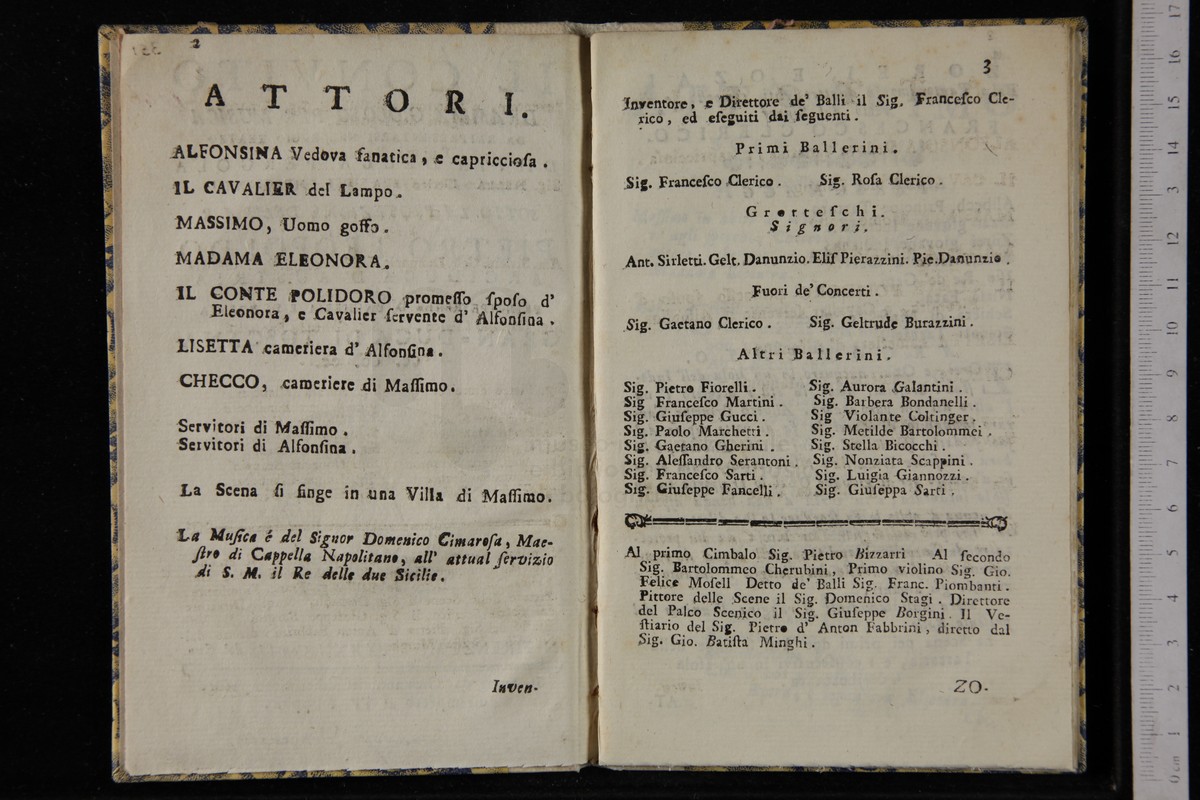 2
ATTORI.
ALFONSINA Vedova fanatica, e capricciosa.
IL CAVALIER del Lampo.
MASSIMO, Uomo goffo.
MADAMA ELEONORA.
IL CONTE POLIDORO promeſſo ſpoſo d'
Eleonora, e Cavalier ſervente d' Alfonſina.
LISETTA cameriera d' Alfonſina.
CHECCO, cameriere di Maſſimo.
Servitori di Maſſimo.
Servitori di Alfonſina.
La Scena ſi finge in una Villa di Maſſimo.
La Muſica é del Signor Domenico Cimaroſa, Mae-
ſtro di Cappella Napolitano, all' attual ſervizio
di S. M. il Re delle due Sicilie.
Inven-
3
Inventore, e Direttore de' Balli il Sig. Franceſco Cle-
rico, ed eſeguiti dai ſeguenti.
Primi Ballerini.
Sig. Franceſco Clerico. Sig. Roſa Clerico.
Grotteſchi.
Signori.
Ant. Sirletti. Gelt. Danunzio. Eliſ Pierazzini. Pie. Danunzio.
Fuori de' Concerti.
Sig. Gaetano Clerico. Sig. Geltrude Burazzini.
Altri Ballerini.
Sig. Pietro Fiorelli. Sig. Aurora Galantini.
Sig Franceſco Martini. Sig. Barbera Bondanelli.
Sig. Giuſeppe Gucci. Sig Violante Coltinger.
Sig. Paolo Marchetti. Sig. Metilde Bartolommei.
Sig. Gaetano Gherini. Sig. Stella Bicocchi.
Sig. Aleſſandro Serantoni. Sig. Nonziata Scappini.
Sig. Franceſco Sarti. Sig. Luigia Giannozzi.
Sig. Giuſeppe Fancelli. Sig. Giuſeppa Sarti.
Al primo Cimbalo Sig. Pietro Bizzarri Al ſecondo
Sig. Bartolommeo Cherubini, Primo violino Sig. Gio.
Felice Moſell Detto de' Balli Sig. Franc. Piombanti.
Pittore delle Scene il Sig. Domenico Stagi. Direttore
del Palco Scenico il Sig. Giuſeppe Borgini. Il Ve-
ſtiario del Sig. Pietro d' Anton Fabbrini, diretto dal
Sig. Gio. Batiſta Minghi.
ZO-